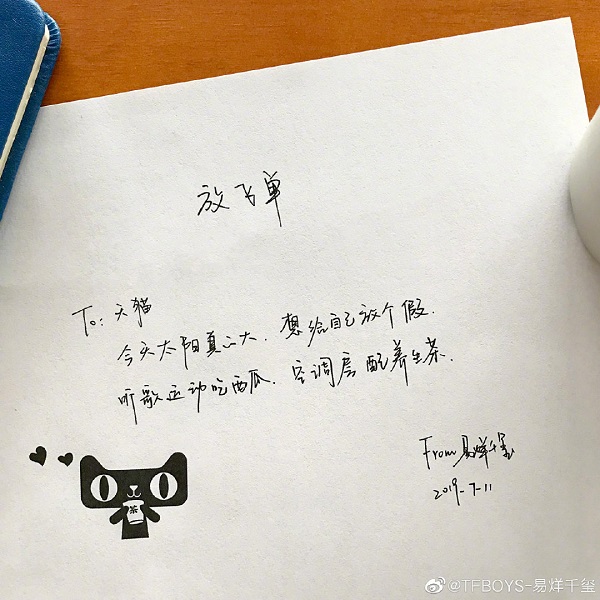 放飞单
To: 天猫
今天太阳真心大. 想给自己放个假.
听歌运动吃西瓜. 空调房配养生茶.
From 易烊千玺
2019-7-11
茶
@TFBOYS-易烊千玺